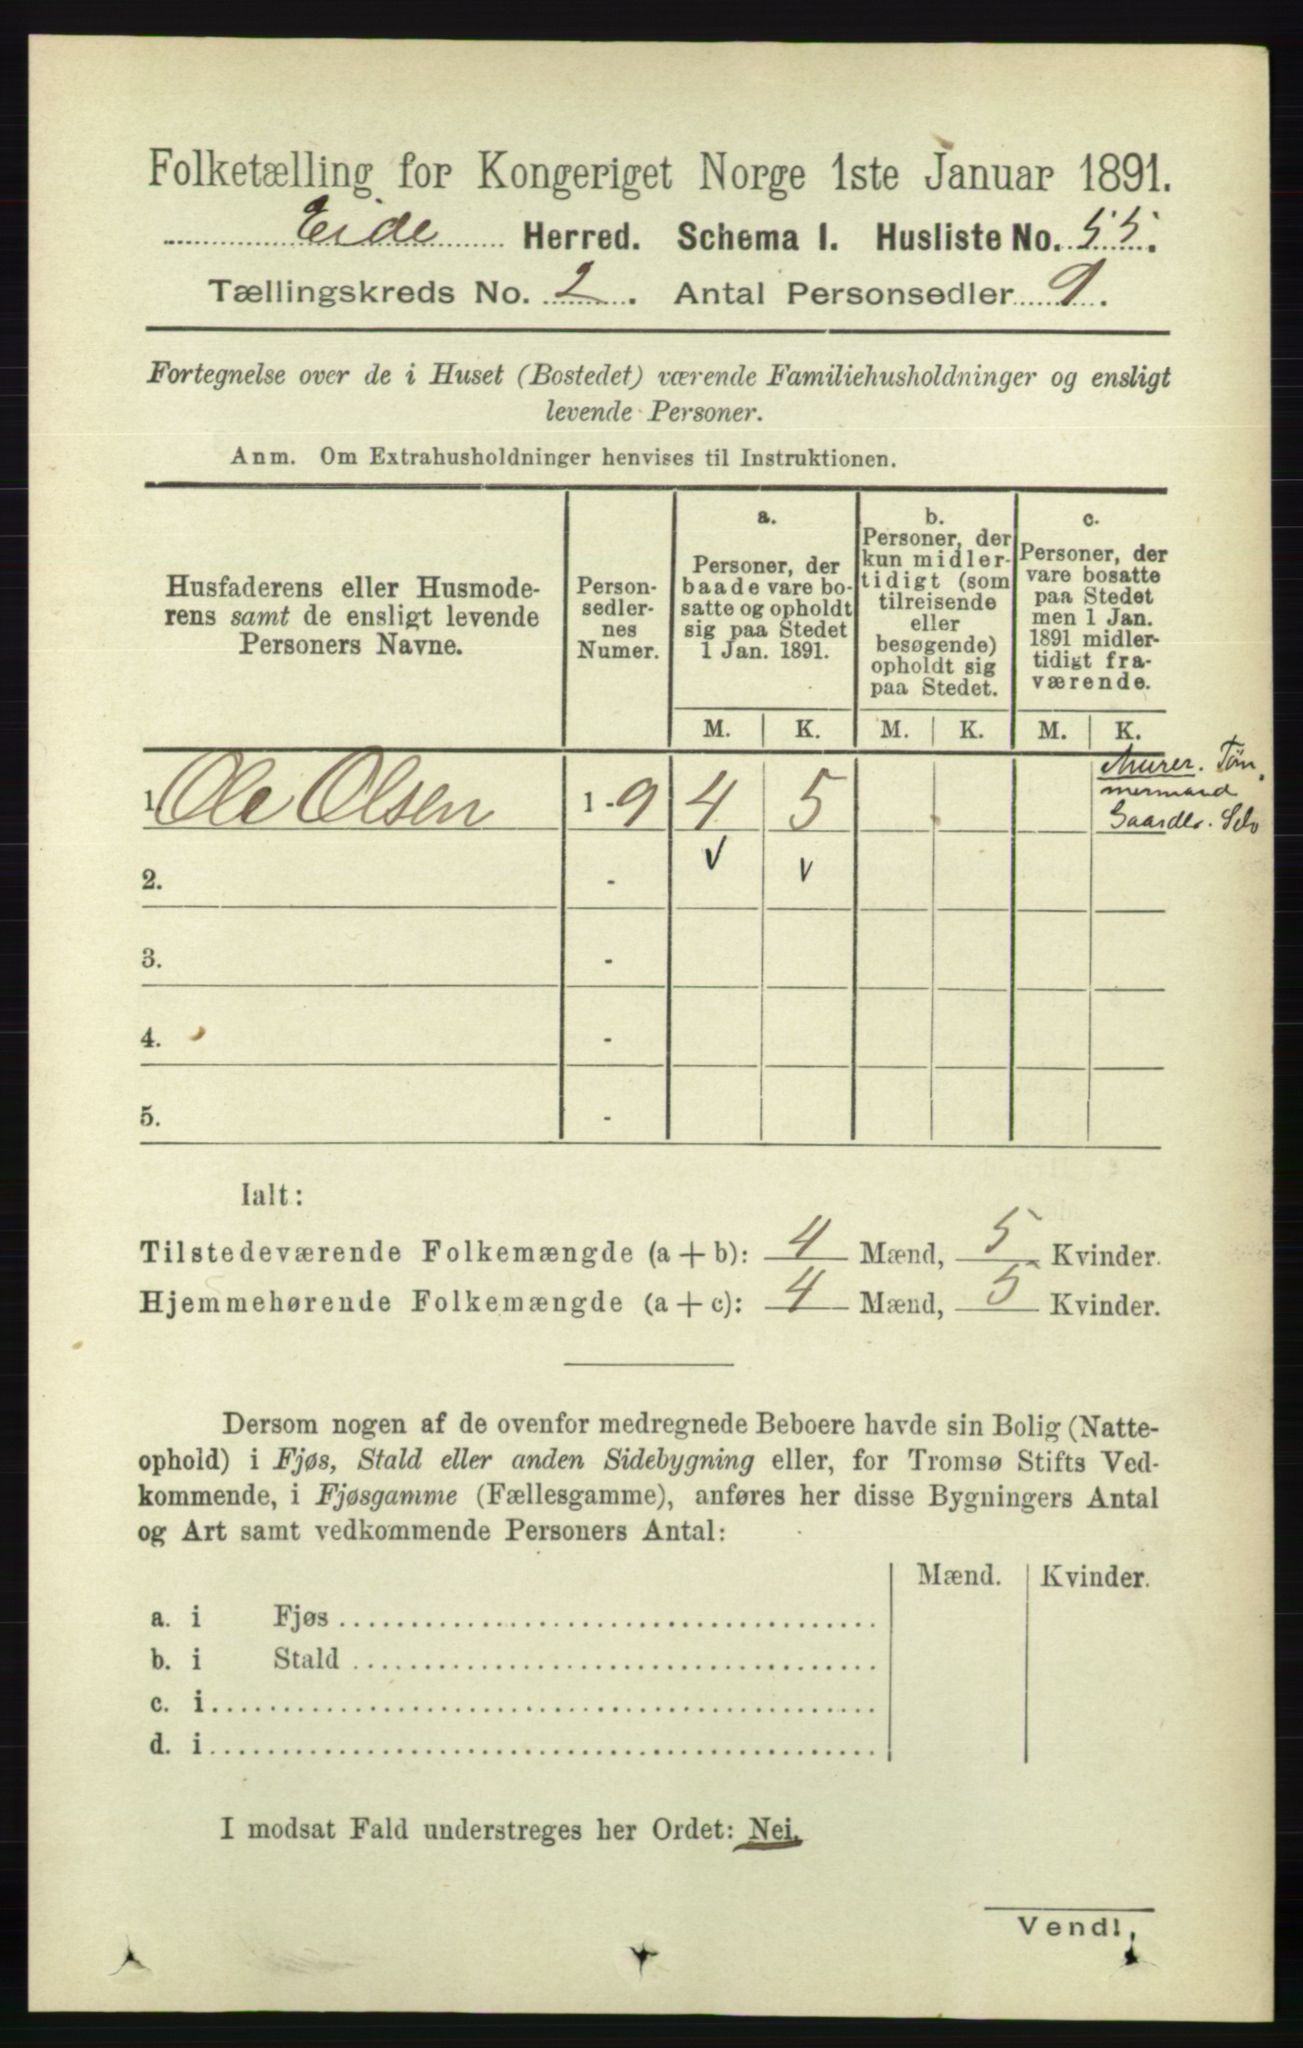 Folketælling for Kongeriget Norge 1ste Januar 1891.
Eide Herred. Schema I. Husliste No. 55.
Tællingskreds No. 2. Antal Personsedler 9.
Fortegnelse over de i Huset (Bostedet) værende Familiehusholdninger og ensligt
levende Personer.
Anm. Om Extrahusholdninger henvises til Instruktionen.
Husfaderens eller Husmode-
rens samt de ensligt levende
Personers Navne.
Person-
sedler-
nes
Numer.
a.
Personer, der
baade vare bo-
satte og opholdt
sig paa Stedet
1 Jan. 1891.
b.
Personer, der
kun midler-
tidigt (som
tilreisende
eller
besøgende)
opholdt sig
paa Stedet.
c.
Personer, der
vare bosatte
paa Stedet
men 1 Jan.
1891 midler-
tidigt fra-
værende.
M. K. M. K. M. K.
Murer. Töm
mermand
Gaardbr. Selv
1 Ole Olsen 1 - 9 4 5
2. -
3. -
4. -
5. -
Ialt:
Tilstedeværende Folkemængde (a + b): 4 Mænd, 5 Kvinder.
Hjemmehørende Folkemængde (a + c): 4 Mænd, 5 Kvinder.
Dersom nogen af de ovenfor medregnede Beboere havde sin Bolig (Natte-
ophold) i Fjøs, Stald eller anden Sidebygning eller, for Tromsø Stifts Ved-
kommende, i Fjøsgamme (Fællesgamme), anføres her disse Bygningers Antal
og Art samt vedkommende Personers Antal:
Mænd. Kvinder.
a. i Fjøs
b. i Stald
c. i
d. i
I modsat Fald understreges her Ordet: Nei.
Vend!